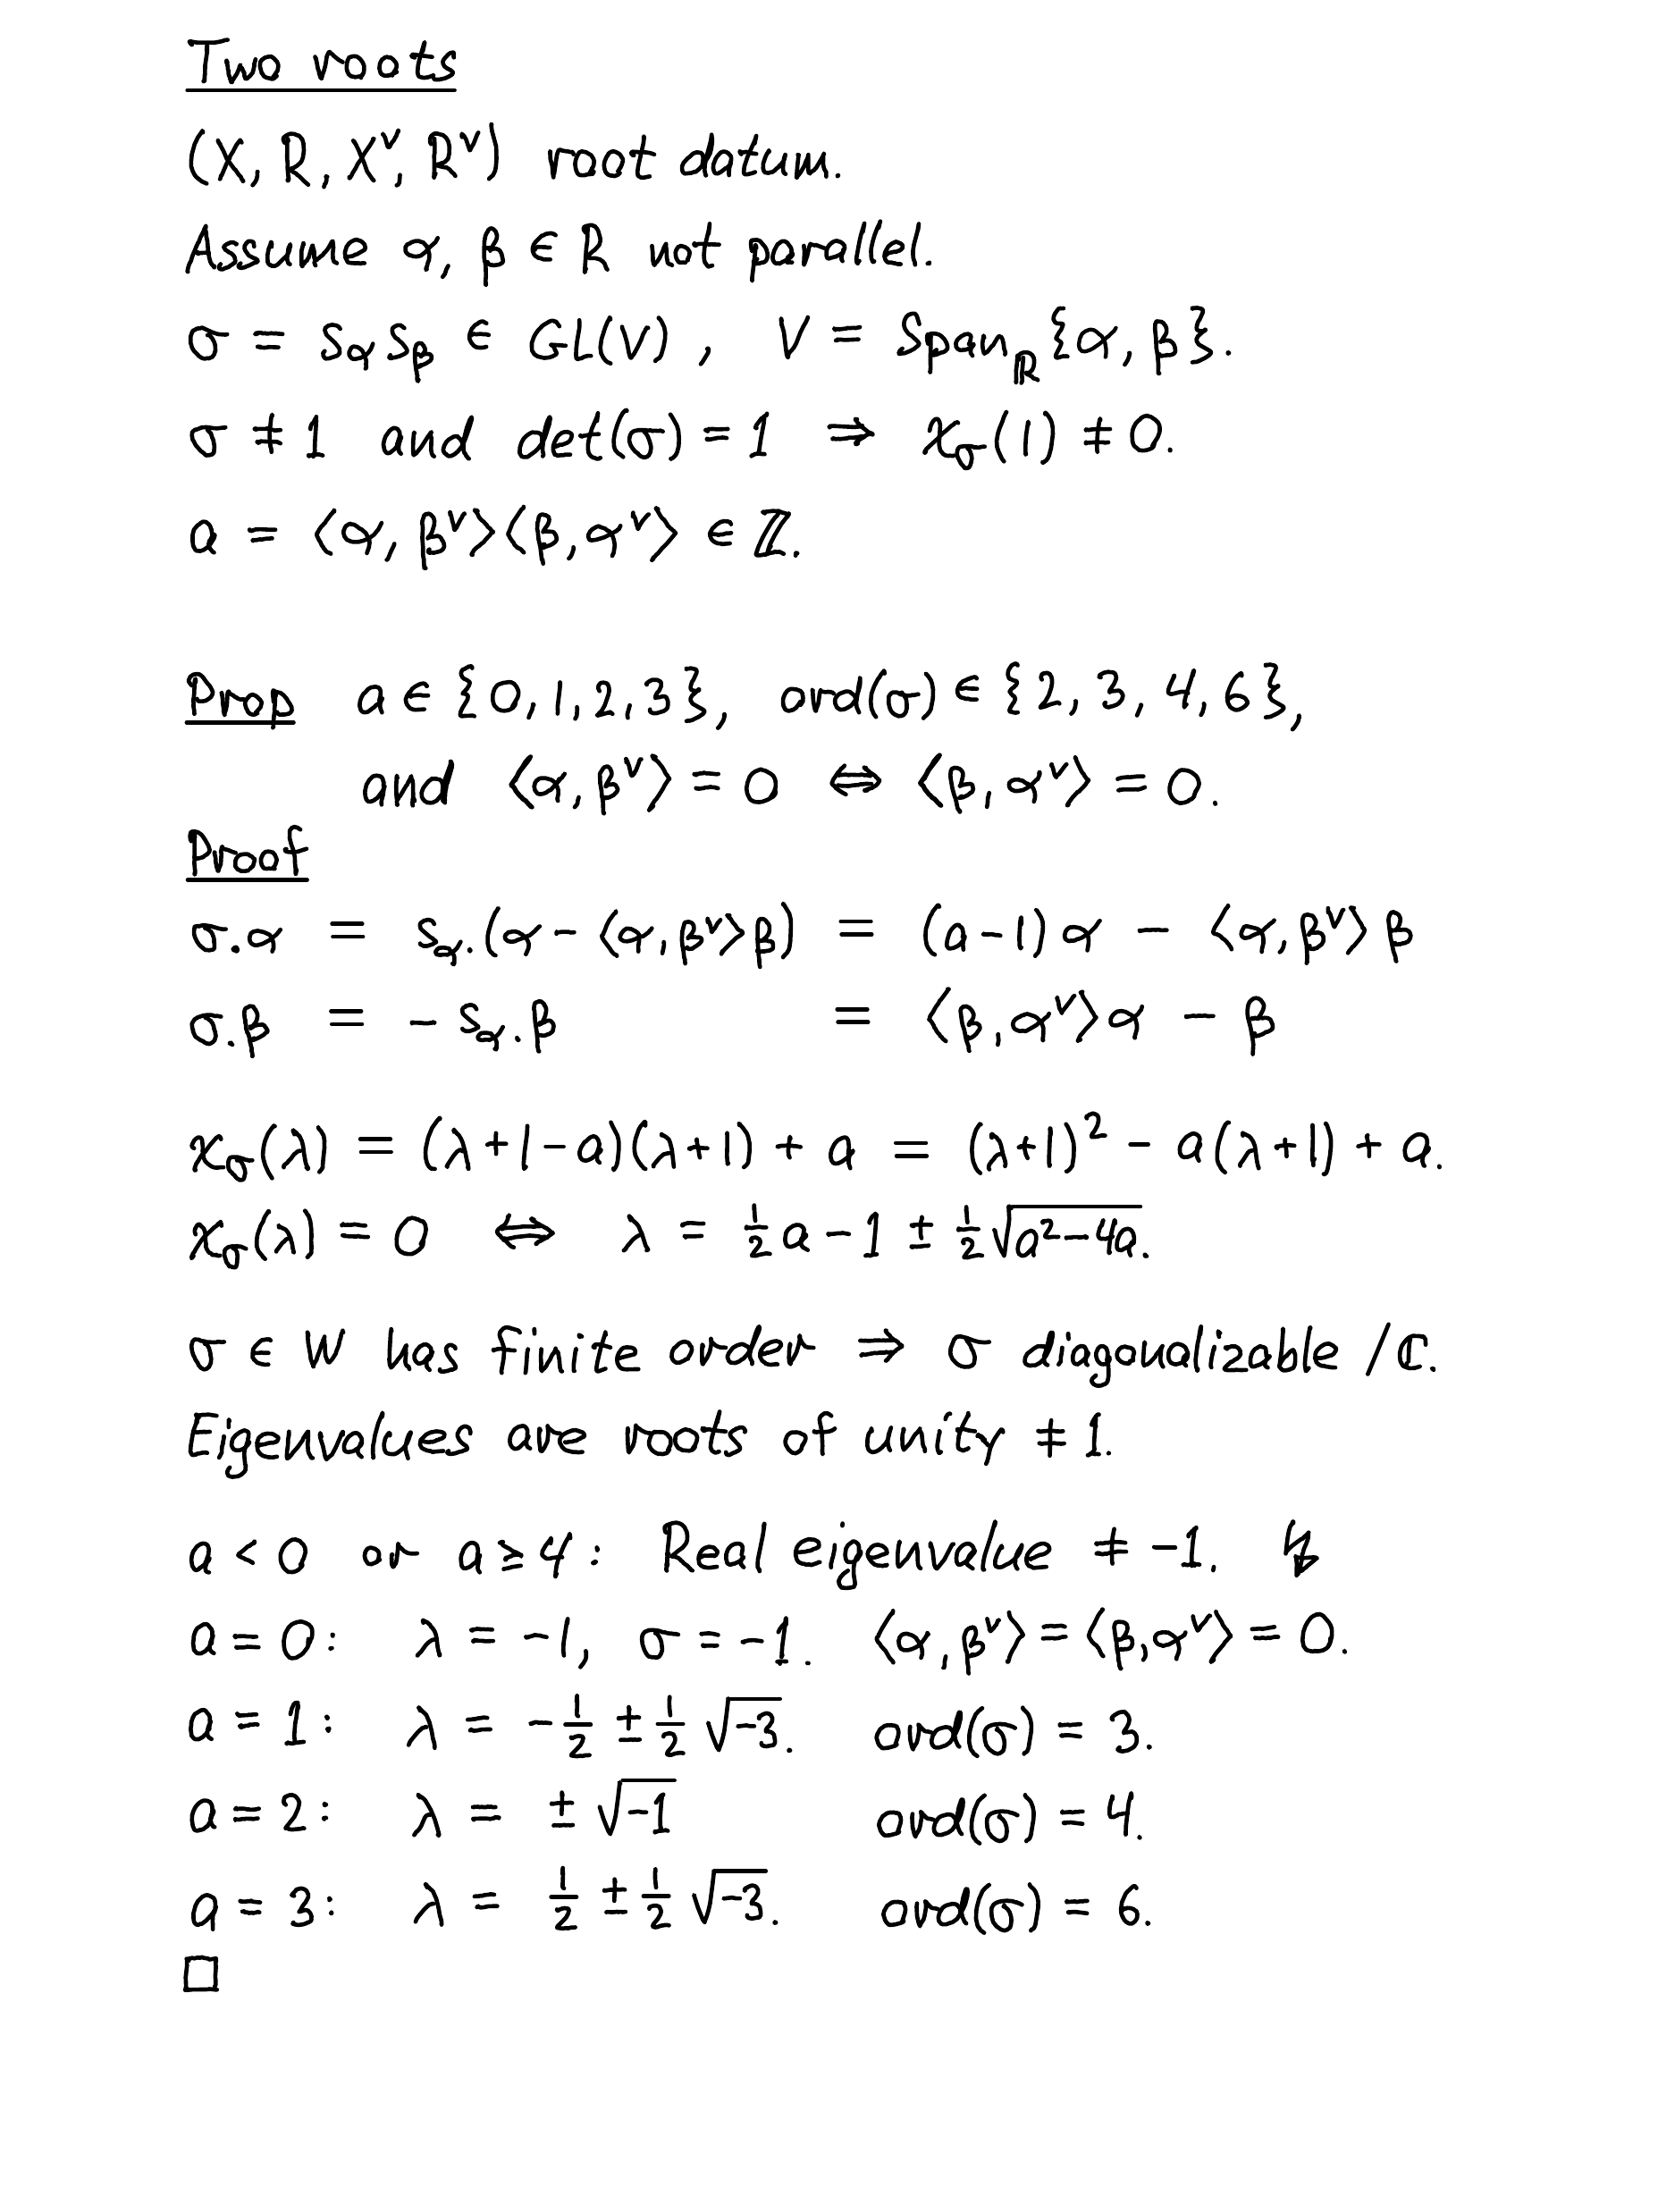 Two roots
(X, R, X^∨, R^∨) root datum.
Assume α, β ∈ R not parallel.
σ = s_α s_β ∈ GL(V), V = Span_ℝ {α, β}.
σ ≠ 1 and det(σ) = 1 ⇒ χ_σ(1) ≠ 0.
a = ⟨α, β^∨⟩⟨β, α^∨⟩ ∈ ℤ.
Prop a ∈ {0, 1, 2, 3}, ord(σ) ∈ {2, 3, 4, 6},
and ⟨α, β^∨⟩ = 0 ⇔ ⟨β, α^∨⟩ = 0.
Proof
σ.α = s_α.(α - ⟨α, β^∨⟩β) = (a-1)α - ⟨α, β^∨⟩β
σ.β = - s_α.β = ⟨β, α^∨⟩α - β
χ_σ(λ) = (λ+1-a)(λ+1) + a = (λ+1)² - a(λ+1) + a.
χ_σ(λ) = 0 ⇔ λ = ½a - 1 ± ½√(a²-4a).
σ ∈ W has finite order ⇒ σ diagonalizable /ℂ.
Eigenvalues are roots of unity ≠ 1.
a < 0 or a ≥ 4: Real eigenvalue ≠ -1. ↯
a = 0: λ = -1, σ = -1. ⟨α, β^∨⟩ = ⟨β, α^∨⟩ = 0.
a = 1: λ = -½ ± ½ √-3. ord(σ) = 3.
a = 2: λ = ± √-1 ord(σ) = 4.
a = 3: λ = ½ ± ½ √-3. ord(σ) = 6.
□